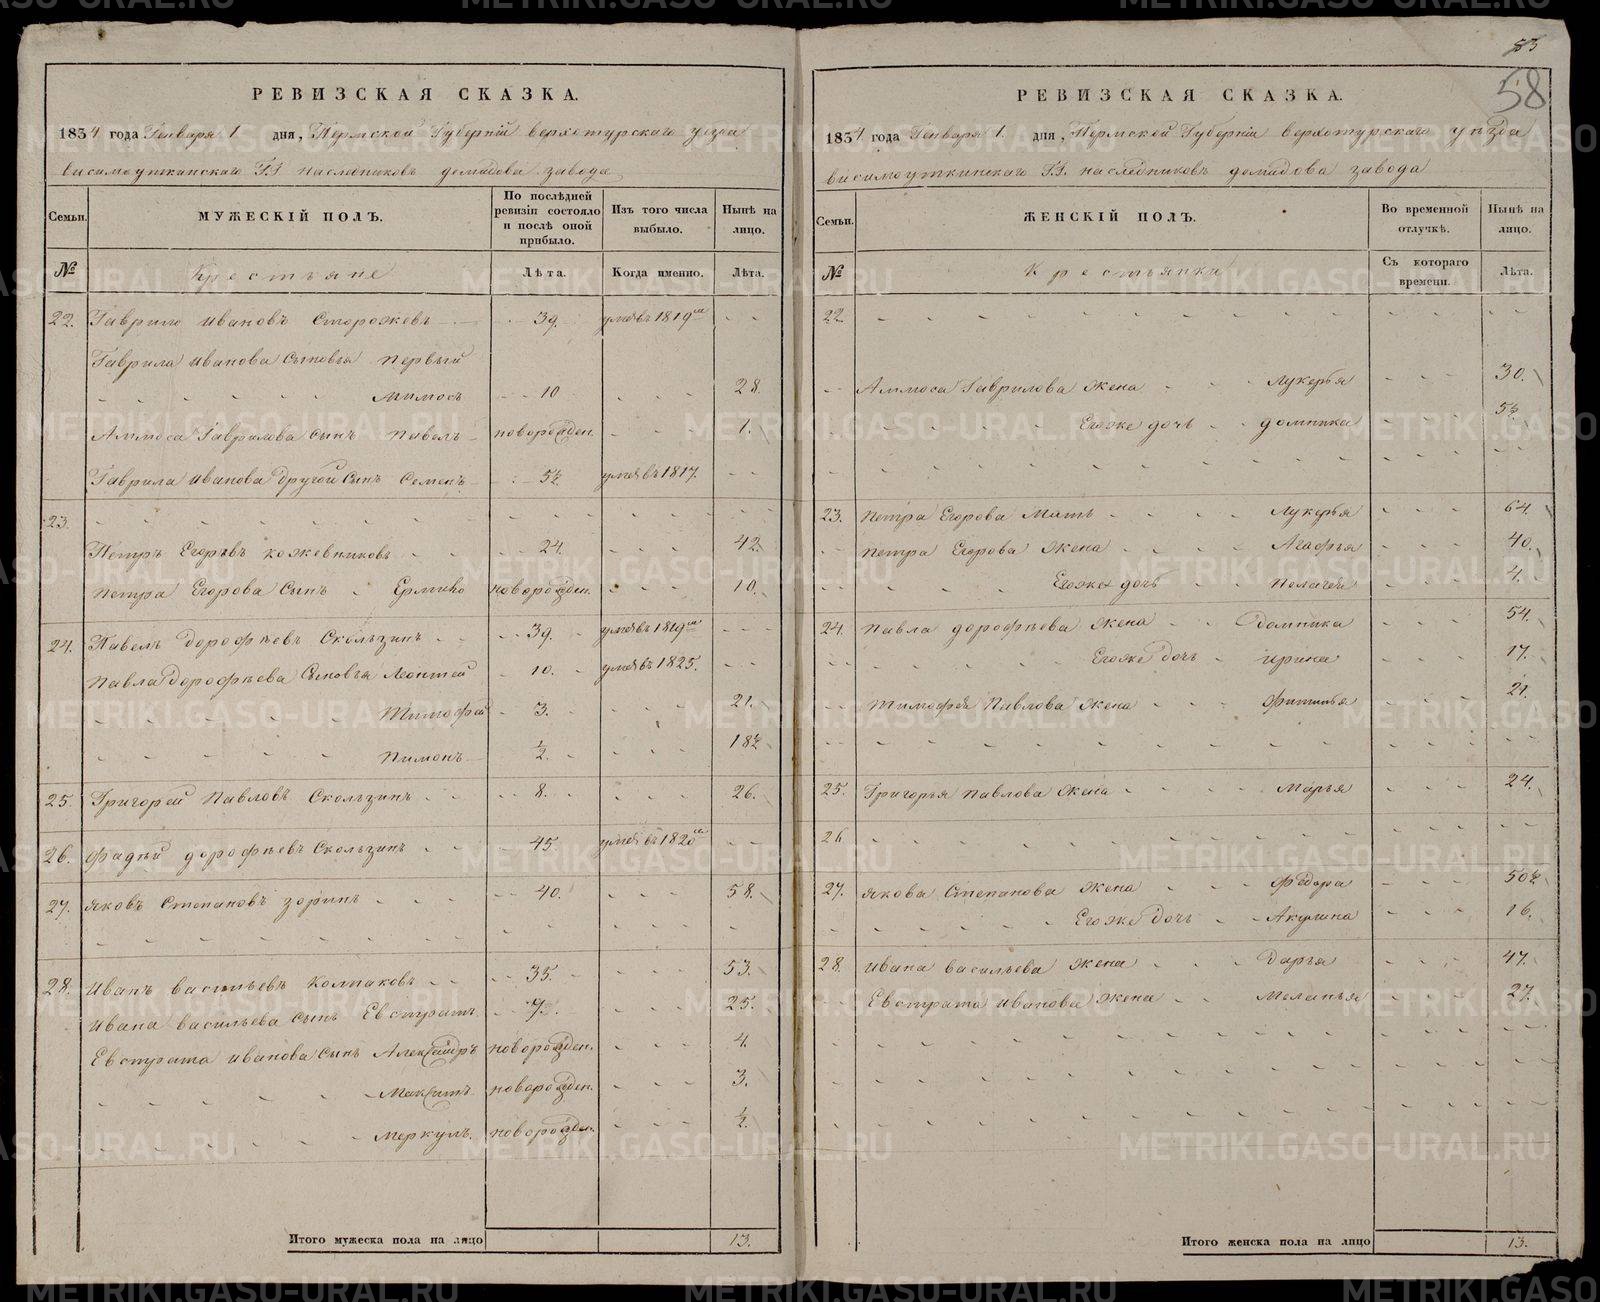 83
58
РЕВИЗСКАЯ СКАЗКА.
1834 года Генваря 1. дня, Пермской Губернiи верхотурскаго уезда
висимоуткинскаго Г.Г. наследниковъ демидова завода
Семьи.
МУЖЕСКIЙ ПОЛЪ.
По послѣдней ревизiи состояло и послѣ оной прибыло.
Изъ того числа выбыло.
Нынѣ на лицо.
№
Крестьяне
Лѣта.
Когда именно.
Лѣта.
22. Гаврило Ивановъ Сторожевъ - 39. умѣ въ 1819м - -
Гаврила Иванова Сыновья первый
Аммосъ - 10 - - - 28.
Аммоса Гаврилова Сынъ Павелъ новорожден. - - - 1.
Гаврила Иванова другой Сынъ Семенъ - 5½ умѣ въ 1817. - -
23. - - - - - -
Петръ Егоровъ кожевниковъ - 24. - - - 42.
Петра Егорова Сынъ Ермило новорожден. - - - 10.
24. Павелъ дорофѣевъ Скользинъ - 39. умѣ въ 1819м - - -
Павла дорофѣева Сыновья Леонтей - 10. умѣ въ 1825. - -
Тимофей - 3. - - - 21.
Пимонъ ½. - - - 18½
25. Григорей Павловъ Скользинъ - 8. - - - 26.
26. Фадѣй дорофѣевъ Скользинъ - 45. умѣ въ 1820м - -
27. Яковъ Степановъ зоринъ - 40. - - - 58.
28. Иванъ васильевъ Колпаковъ - 35. - - - 53.
Ивана васильева сынъ Евстратъ - 7. - - - 25.
Евстрата иванова сынъ Александръ новорожден. - - - 4.
Максимъ новорожден. - - - 3.
Меркулъ. новорожден. - - - ½.
Итого мужеска пола на лицо 13.
РЕВИЗСКАЯ СКАЗКА.
1834. года Генваря 1. дня, Пермской Губернiи верхотурскаго уѣзда
висимоуткинскаго Г.Г. наследниковъ демидова завода
Семьи.
ЖЕНСКIЙ ПОЛЪ.
Во временной отлучкѣ.
Нынѣ на лицо.
№
Крестьянки
Съ котораго времени.
Лѣта.
22 - - - - - -
Аммоса Гаврилова жена - - - Лукерья - - - 30.
Егоже дочь - - домника - - - 5½.
23. Петра Егорова Мать - - - Лукерья - - - 64.
Петра Егорова жена - - - Агафья - - - 40.
Егоже дочь - - Пелагея - - - 4.
24. Павла дорофѣева жена - - Домника - - - 54.
Егоже дочь - ирина - - - 17.
Тимофея Павлова жена - - - Фитинья - - - 21.
25. Григорья Павлова жена - - - Марья - - - 24.
26 - - - - - -
27. Якова Степанова жена - - - Федора - - - 50½
Егоже дочь - - Акулина - - - 16.
28. Ивана васильева жена - - - дарья - - - 47.
Евстрата иванова жена - - Меланья - - - 27.
Итого женска пола на лицо 13.
METRIKI.GASO-URAL.RU